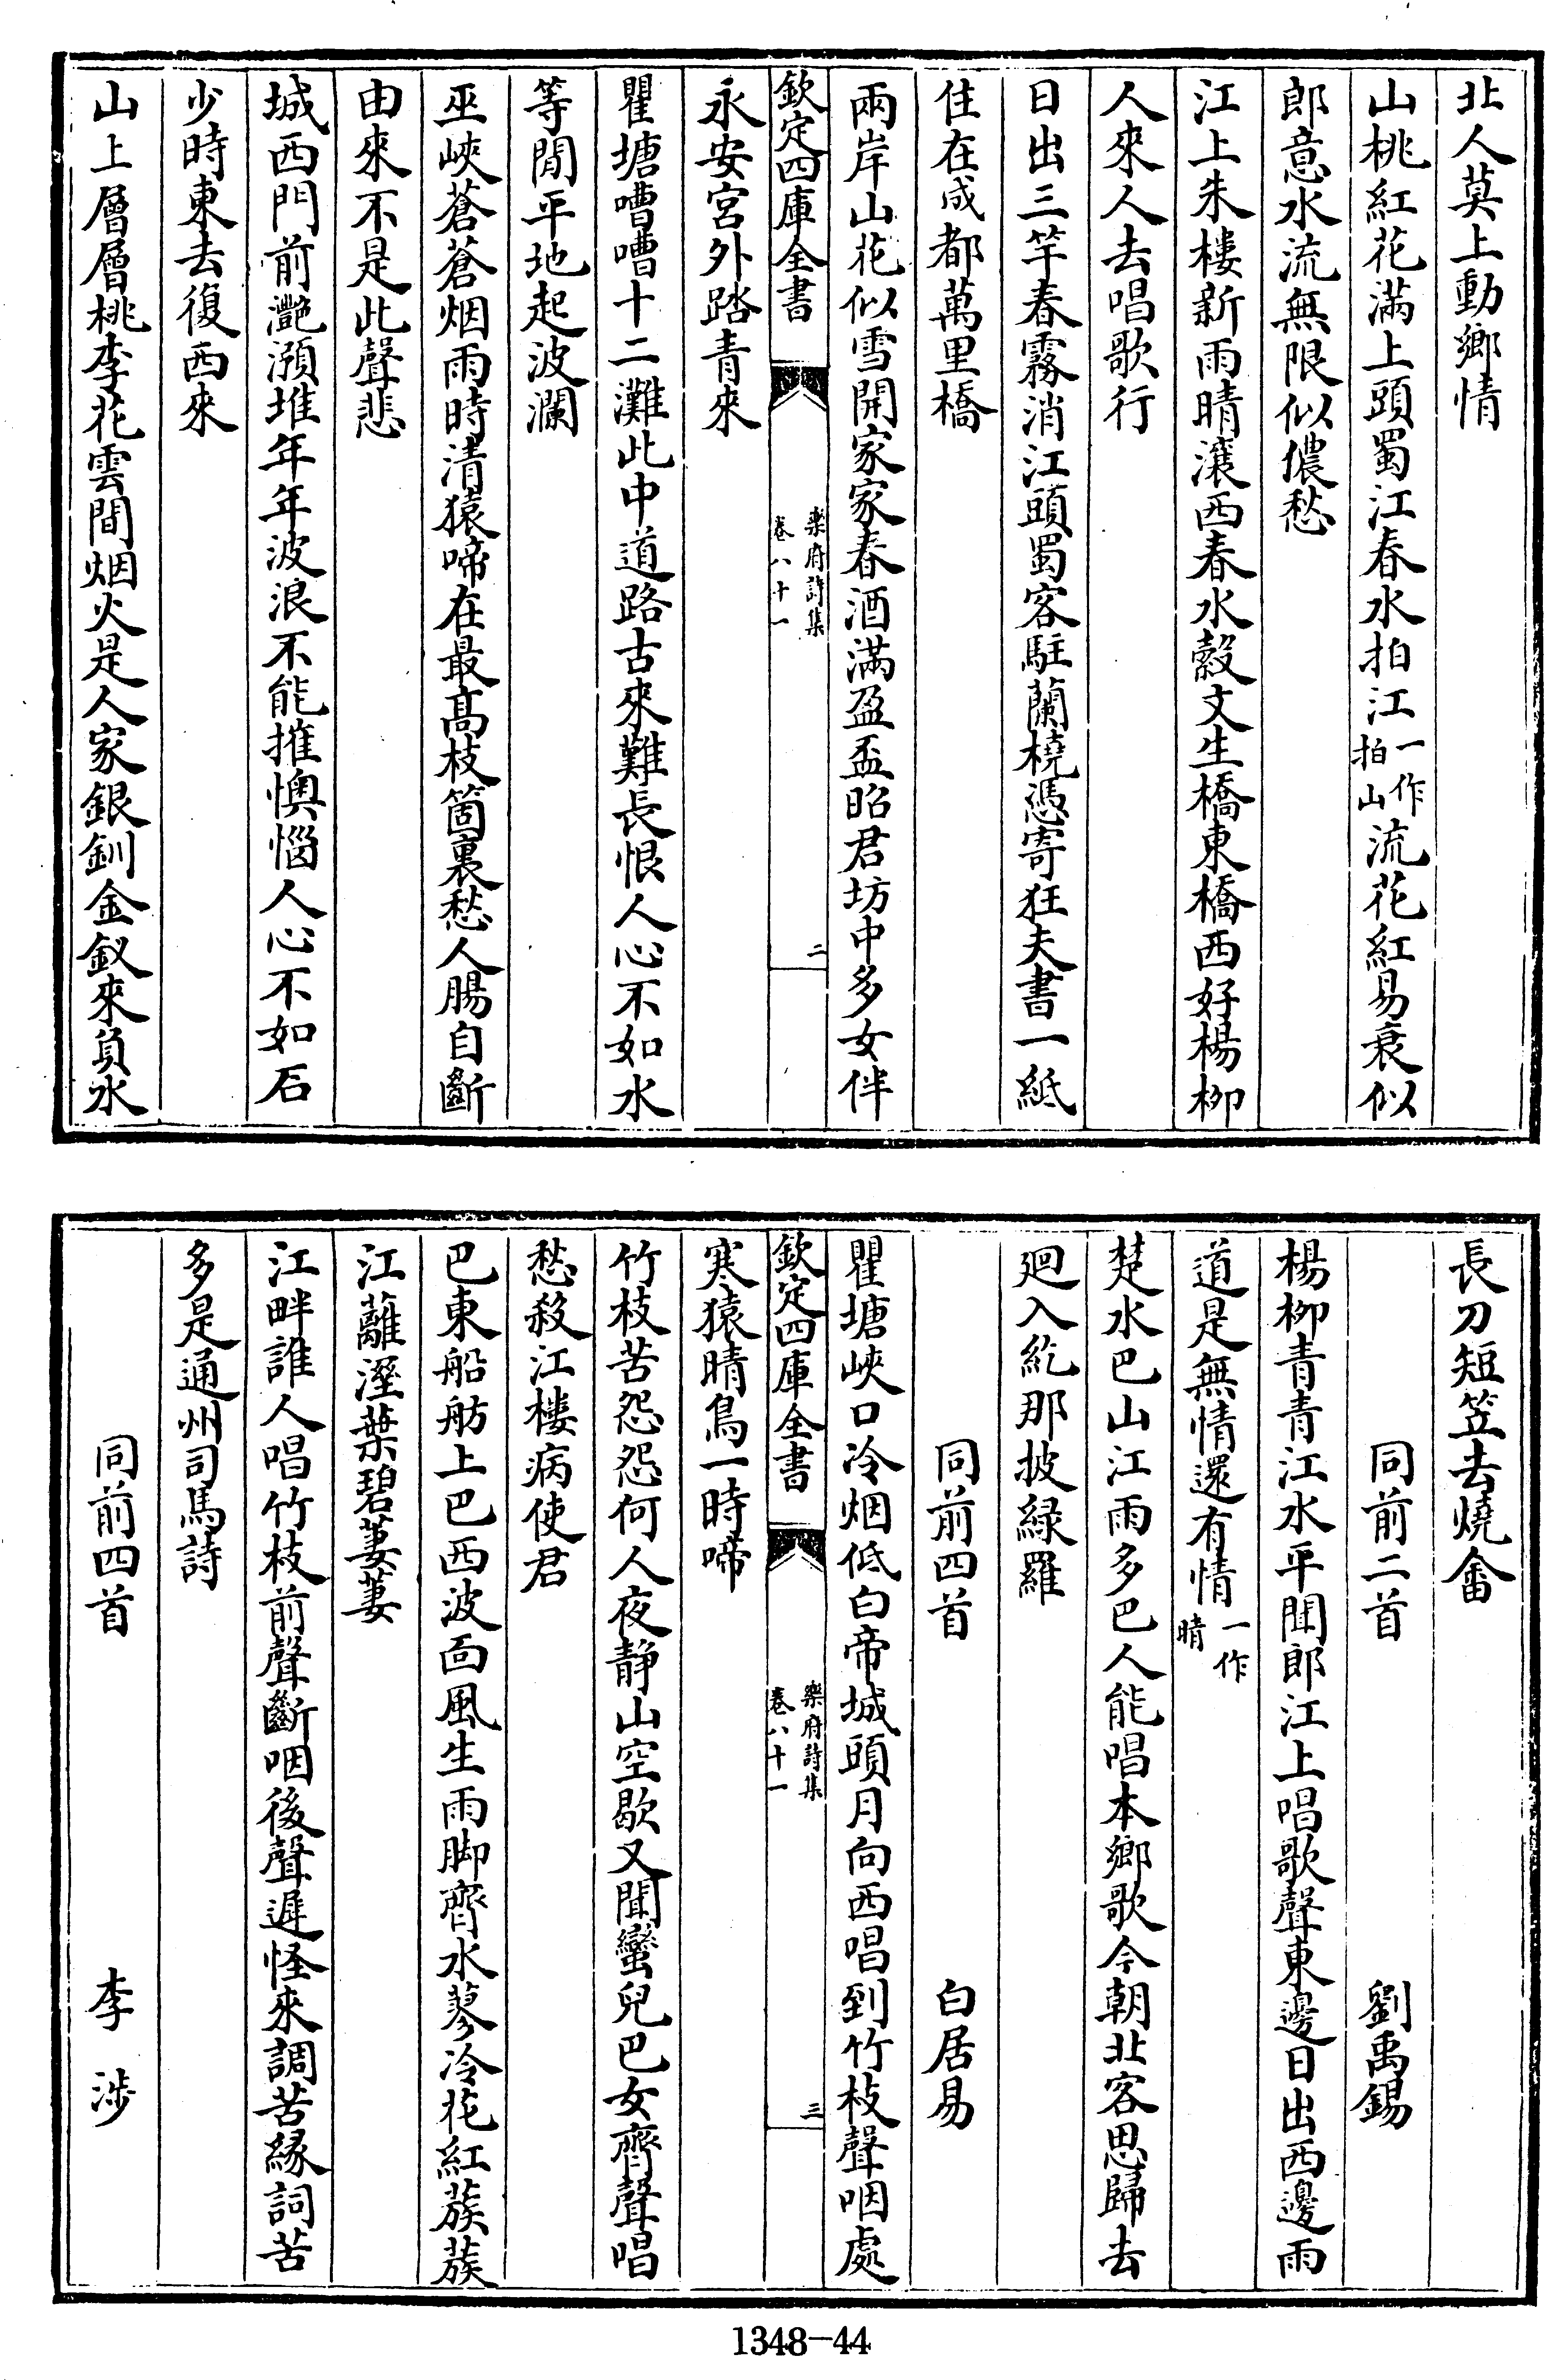 北人莫上動鄉情
山桃紅花滿上頭蜀江春水拍江一作拍山流花紅易衰似
郎意水流無限似儂愁
江上朱樓新雨晴瀼西春水縠文生橋東橋西好楊柳
人來人去唱歌行
日出三竿春霧消江頭蜀客駐蘭橈憑寄狂夫書一紙
住在成都萬里橋
兩岸山花似雪開家家春酒滿盈盃昭君坊中多女伴
欽定四庫全書 樂府詩集卷八十一 二
永安宮外踏青來
瞿塘嘈嘈十二灘此中道路古來難長恨人心不如水
等閒平地起波瀾
巫峽蒼蒼烟雨時清猿啼在最高枝箇裏愁人腸自斷
由來不是此聲悲
城西門前灔澦堆年年波浪不能摧懊惱人心不如石
少時東去復西來
山上層層桃李花雲間烟火是人家銀釧金釵來負水
長刀短笠去燒畬
同前二首 劉禹錫
楊柳青青江水平聞郎江上唱歌聲東邊日出西邊雨
道是無情還有情一作晴
楚水巴山江雨多巴人能唱本鄉歌今朝北客思歸去
廻入紇那披綠羅
同前四首 白居易
瞿塘峽口冷烟低白帝城頭月向西唱到竹枝聲咽處
欽定四庫全書 樂府詩集卷八十一 三
寒猿晴鳥一時啼
竹枝苦怨怨何人夜静山空歇又聞蠻兒巴女齊聲唱
愁殺江樓病使君
巴東船舫上巴西波面風生雨脚齊水蓼冷花紅蔟蔟
江蘺溼葉碧萋萋
江畔誰人唱竹枝前聲斷咽後聲遲怪來調苦緣詞苦
多是通州司馬詩
同前四首 李涉
1348-44